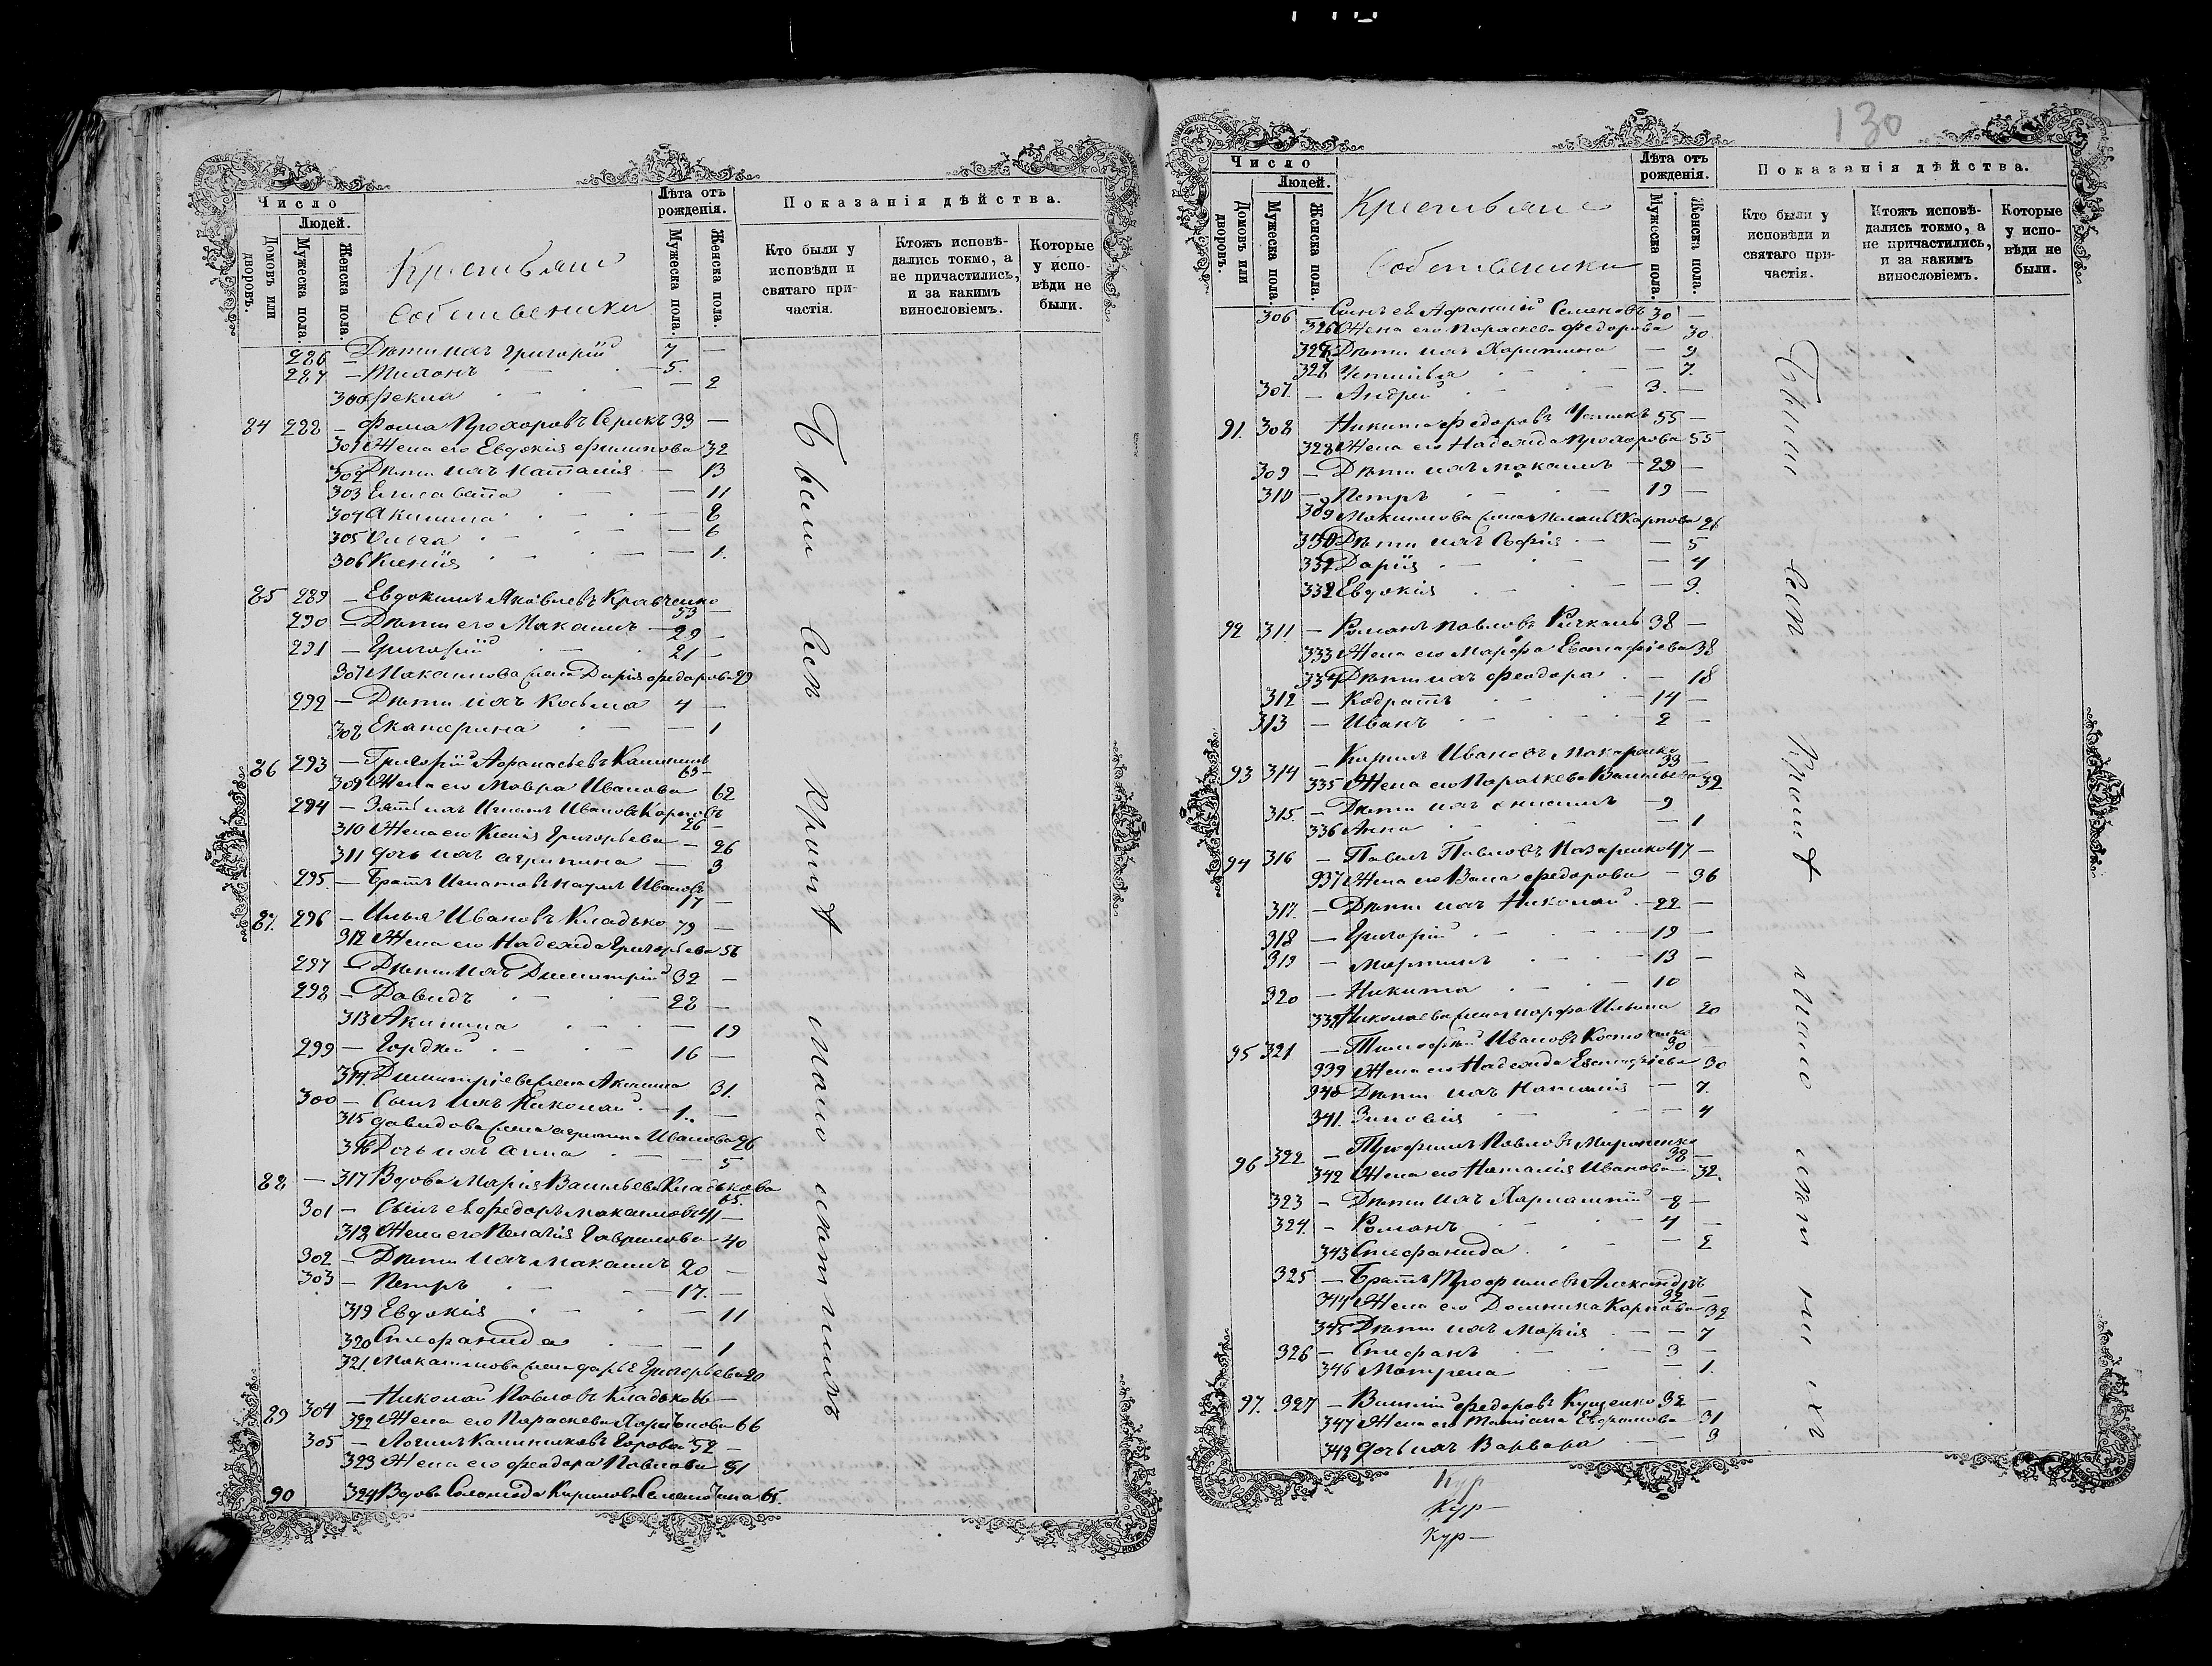 Число
Людей.
Домовъ или дворовъ.
Мужеска пола.
Женска пола.
Крестьяне
собственики
Лѣта отъ рожденія.
Мужеска пола.
Женска пола.
Показанія дѣйства.
Кто были у исповѣди и святаго причастія.
Ктожъ исповѣдались токмо, а не причастились, и за какимъ винословіемъ.
Которые у исповѣди не были.
286 – Дѣти ихъ Григорій 7 –
287 – Тихонъ – 5. –
300 Фекла – 2
84 288 – Фома Прохоровъ Серикъ 33 –
301 Жена его Евдокія Филипова 32
302 Дѣти ихъ Наталія – 13
303 Елисавета – 11
304 Акилина – 8
305 Ольга – 6
306 Ксенія – 1.
85 289 – Евдокимъ Яковлевъ Кравченко 53 –
290 – Дѣти его Максимъ – 29 –
291 – Григорій – 21 –
307 Максимова жена Дарія Федорова 29
292 – Дѣти ихъ Косьма 4 –
308 Екатерина – 1
86 293 – Григорій Афанасьевъ 63 –
309 Жена его Мавра Иванова 62
294 – Зять ихъ Игнатъ Ивановъ Карповъ 26 –
310 Жена его Ксенія Григорьева – 26
311 дочь ихъ Агрипина – 3
295. – Братъ Игнатовъ Наумъ Ивановъ 17 –
87. 296 – Илья Ивановъ Кладько 79 –
312 Жена его Надежда Григорьева 56
297 – Дѣти ихъ Димитрій 32 –
298 – Давидъ – 28 –
313 Акилина – 19
299 – Гордѣй – 16 –
314 Димитріева жена Акилина 31.
300 – Сынъ ихъ Николай – 1. –
315 Давидова жена Агрипина Иванова 26
316 Дочь ихъ Анна – 5
88 – 317 Вдова Марія Васильева Кладькова 65.
301 – Сынъ ея Федоръ Максимовъ 41 –
318 Жена его Пелагія Гаврилова – 40
302 – Дѣти ихъ Максимъ 20 –
303 – Петръ – 17. –
319 Евдокія – 11
320 Стефанида – 1
321. Максимова жена Дарья Григорьева 20
89 304 – Николай Павловъ Кладько 66 –
322 Жена его Параскева Харитонова 66
305 – Логинъ Калениковъ Горовой 52 –
323 Жена его Феодора Павлова 51
90 324 Вдова Соломонида Кирилова 65.
Были вси
130
Число
Людей.
Домовъ или дворовъ.
Мужеска пола.
Женска пола.
Крестьяне
Собственики
Лѣта отъ рожденія.
Мужеска пола.
Женска пола.
Показанія дѣйства.
Кто были у исповѣди и святаго причастія.
Ктожъ исповѣдались токмо, а не причастились, и за какимъ винословіемъ.
Которые у исповѣди не были.
306 – Сынъ ея Афанасій Семеновъ 30 –
326 Жена его Параскева Федорова 30.
327 Дѣти ихъ Харитина – 9
328 Устинія – 7.
307. – Андрей – 3. –
91. 308 Никита Федоровъ 55 –
328 Жена его Надежда Прохорова 55
309 – Дѣти ихъ Максимъ – 29 –
310 – Петръ – 19 –
Максимова жена Меланья Карпова 26
330 Дѣти ихъ Софія – 5
331 Дарія – 4
332 Евдокія – 3.
92 311 – Романъ Павловъ 38 –
333 Жена его Марфа Евстафіева 38
334 Дѣти ихъ Феодора – 18
312 – Кодратъ – 14 –
313 – Иванъ – 2 –
93 314 – Кирилъ Ивановъ Макаренко 33 –
335 Жена его Параскева Васильева 32
315. – Дѣти ихъ Онисимъ – 9 –
336 Анна – 1
94 316 – Павелъ Павловъ Назаренко 47 –
337 Жена его Васса Федорова – 36
317. – Дѣти ихъ Николай – 22 –
318 – Григорій – 19 –
319 – Мартинъ – 13 –
320 – Никита – 10
338 Николаева жена Марфа Ильина 20
95 321 – Тимофей Ивановъ 30 –
339 Жена его Надежда Евстафіева 30
340 Дѣти ихъ Наталія – 7.
341. Зиновія – 4
96 322 – Трофимъ Павловъ Мироненко 38 –
342 Жена его Наталія Иванова 32.
323 – Дѣти ихъ Харлампій – 8 –
324. – Романъ – 4 –
343 Стефанида – 2
325 – Братъ Трофимовъ Александръ 32 –
344 Жена его Домника Карпова 32
345 Дѣти ихъ Марія – 7
326 – Стефанъ – 3 –
346 Матрена – 1.
97. 327 – Василій Федоровъ Куценко 32 –
347 Жена его Татіана 31
348 дочь ихъ Варвара – 3
Были вси
Кур
Кур –
Кур –